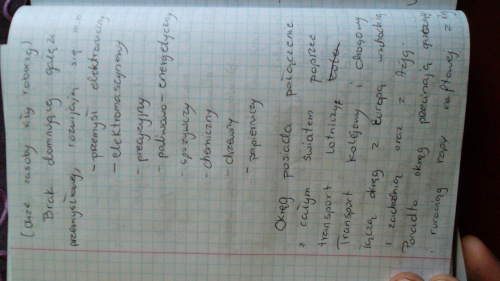 (duże zasoby siły roboczej)
Brak dominującej gałęzi
przemysłowej, rozwijają się m.in.
- przemysł elektroniczny
- elektromaszynowy
- precyzyjny
- paliwowo-energetyczny
- spożywczy
- chemiczny
- drzewny
- papierniczy
Okręg posiada połączenie
z całym światem poprzez
transport lotniczy.
Transport kolejowy i drogowy
łączą okręg z Europą wschodnią
i zachodnią oraz z Azją.
Ponadto okręg przecinają gazociąg
i rurociąg ropy naftowej z